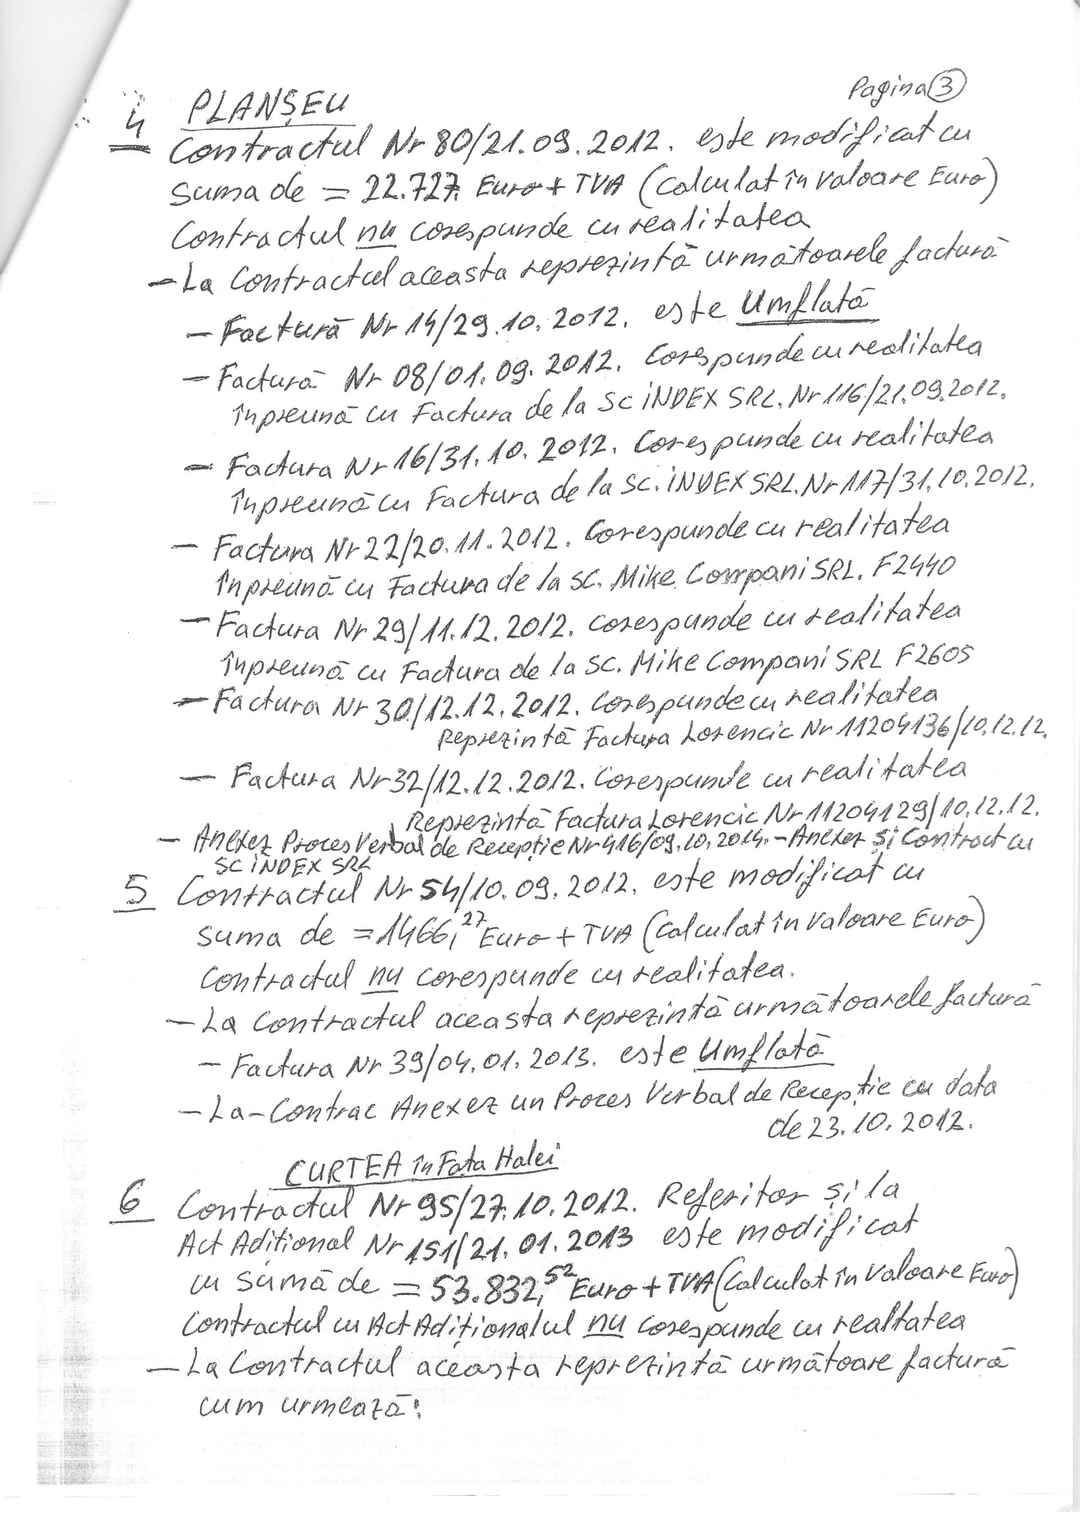 Pagina 3
4 PLANȘEU
Contractul Nr 80/21.09.2012. este modificat cu
suma de = 22.727, Euro + TVA (Calculat în valoare Euro)
Contractul nu corespunde cu realitatea
- La Contractul aceasta reprezintă următoarele factură
- Factură Nr 14/29.10.2012. este Umflată
- Factură Nr 08/01.09.2012. Corespunde cu realitatea
înpreună cu Factura de la SC iNDEX SRL. Nr 116/21.09.2012.
- Factura Nr 16/31.10.2012. Corespunde cu realitatea
înpreună cu Factura de la SC. iNDEX SRL. Nr 117/31.10.2012.
- Factura Nr 22/20.11.2012. Corespunde cu realitatea
înpreună cu Factura de la SC. Mike Compani SRL. F2440
- Factura Nr 29/11.12.2012. corespunde cu realitatea
înpreună cu Factura de la SC. Mike Compani SRL F2605
- Factura Nr 30/12.12.2012. Corespunde cu realitatea
Reprezintă Factura Lorencic Nr 11204136/10.12.12.
- Factura Nr 32/12.12.2012. Corespunde cu realitatea
Reprezintă Factura Lorencic Nr 11204129/10.12.12.
- Anexez Proces Verbal de Recepție Nr 416/09.10.2014. - Anexez și Contract cu
SC iNDEX SRL
5 Contractul Nr 54/10.09.2012. este modificat cu
suma de = 1466,27 Euro + TVA (Calculat în valoare Euro)
Contractul nu corespunde cu realitatea.
- La Contractul aceasta reprezintă următoarele factură
- Factura Nr 39/04.01.2013. este Umflată
- La-Contrac Anexez un Proces Verbal de Recepție cu data
de 23.10.2012.
CURTEA în Fata Halei
6 Contractul Nr 95/27.10.2012. Referitor și la
Act Adițional Nr 151/21.01.2013 este modificat
cu sumă de = 53.832,52 Euro + TVA (Calculat în valoare Euro)
Contractul cu Act Adiționalul nu corespunde cu realtatea
- La Contractul aceasta reprezintă următoare factură
cum urmează: